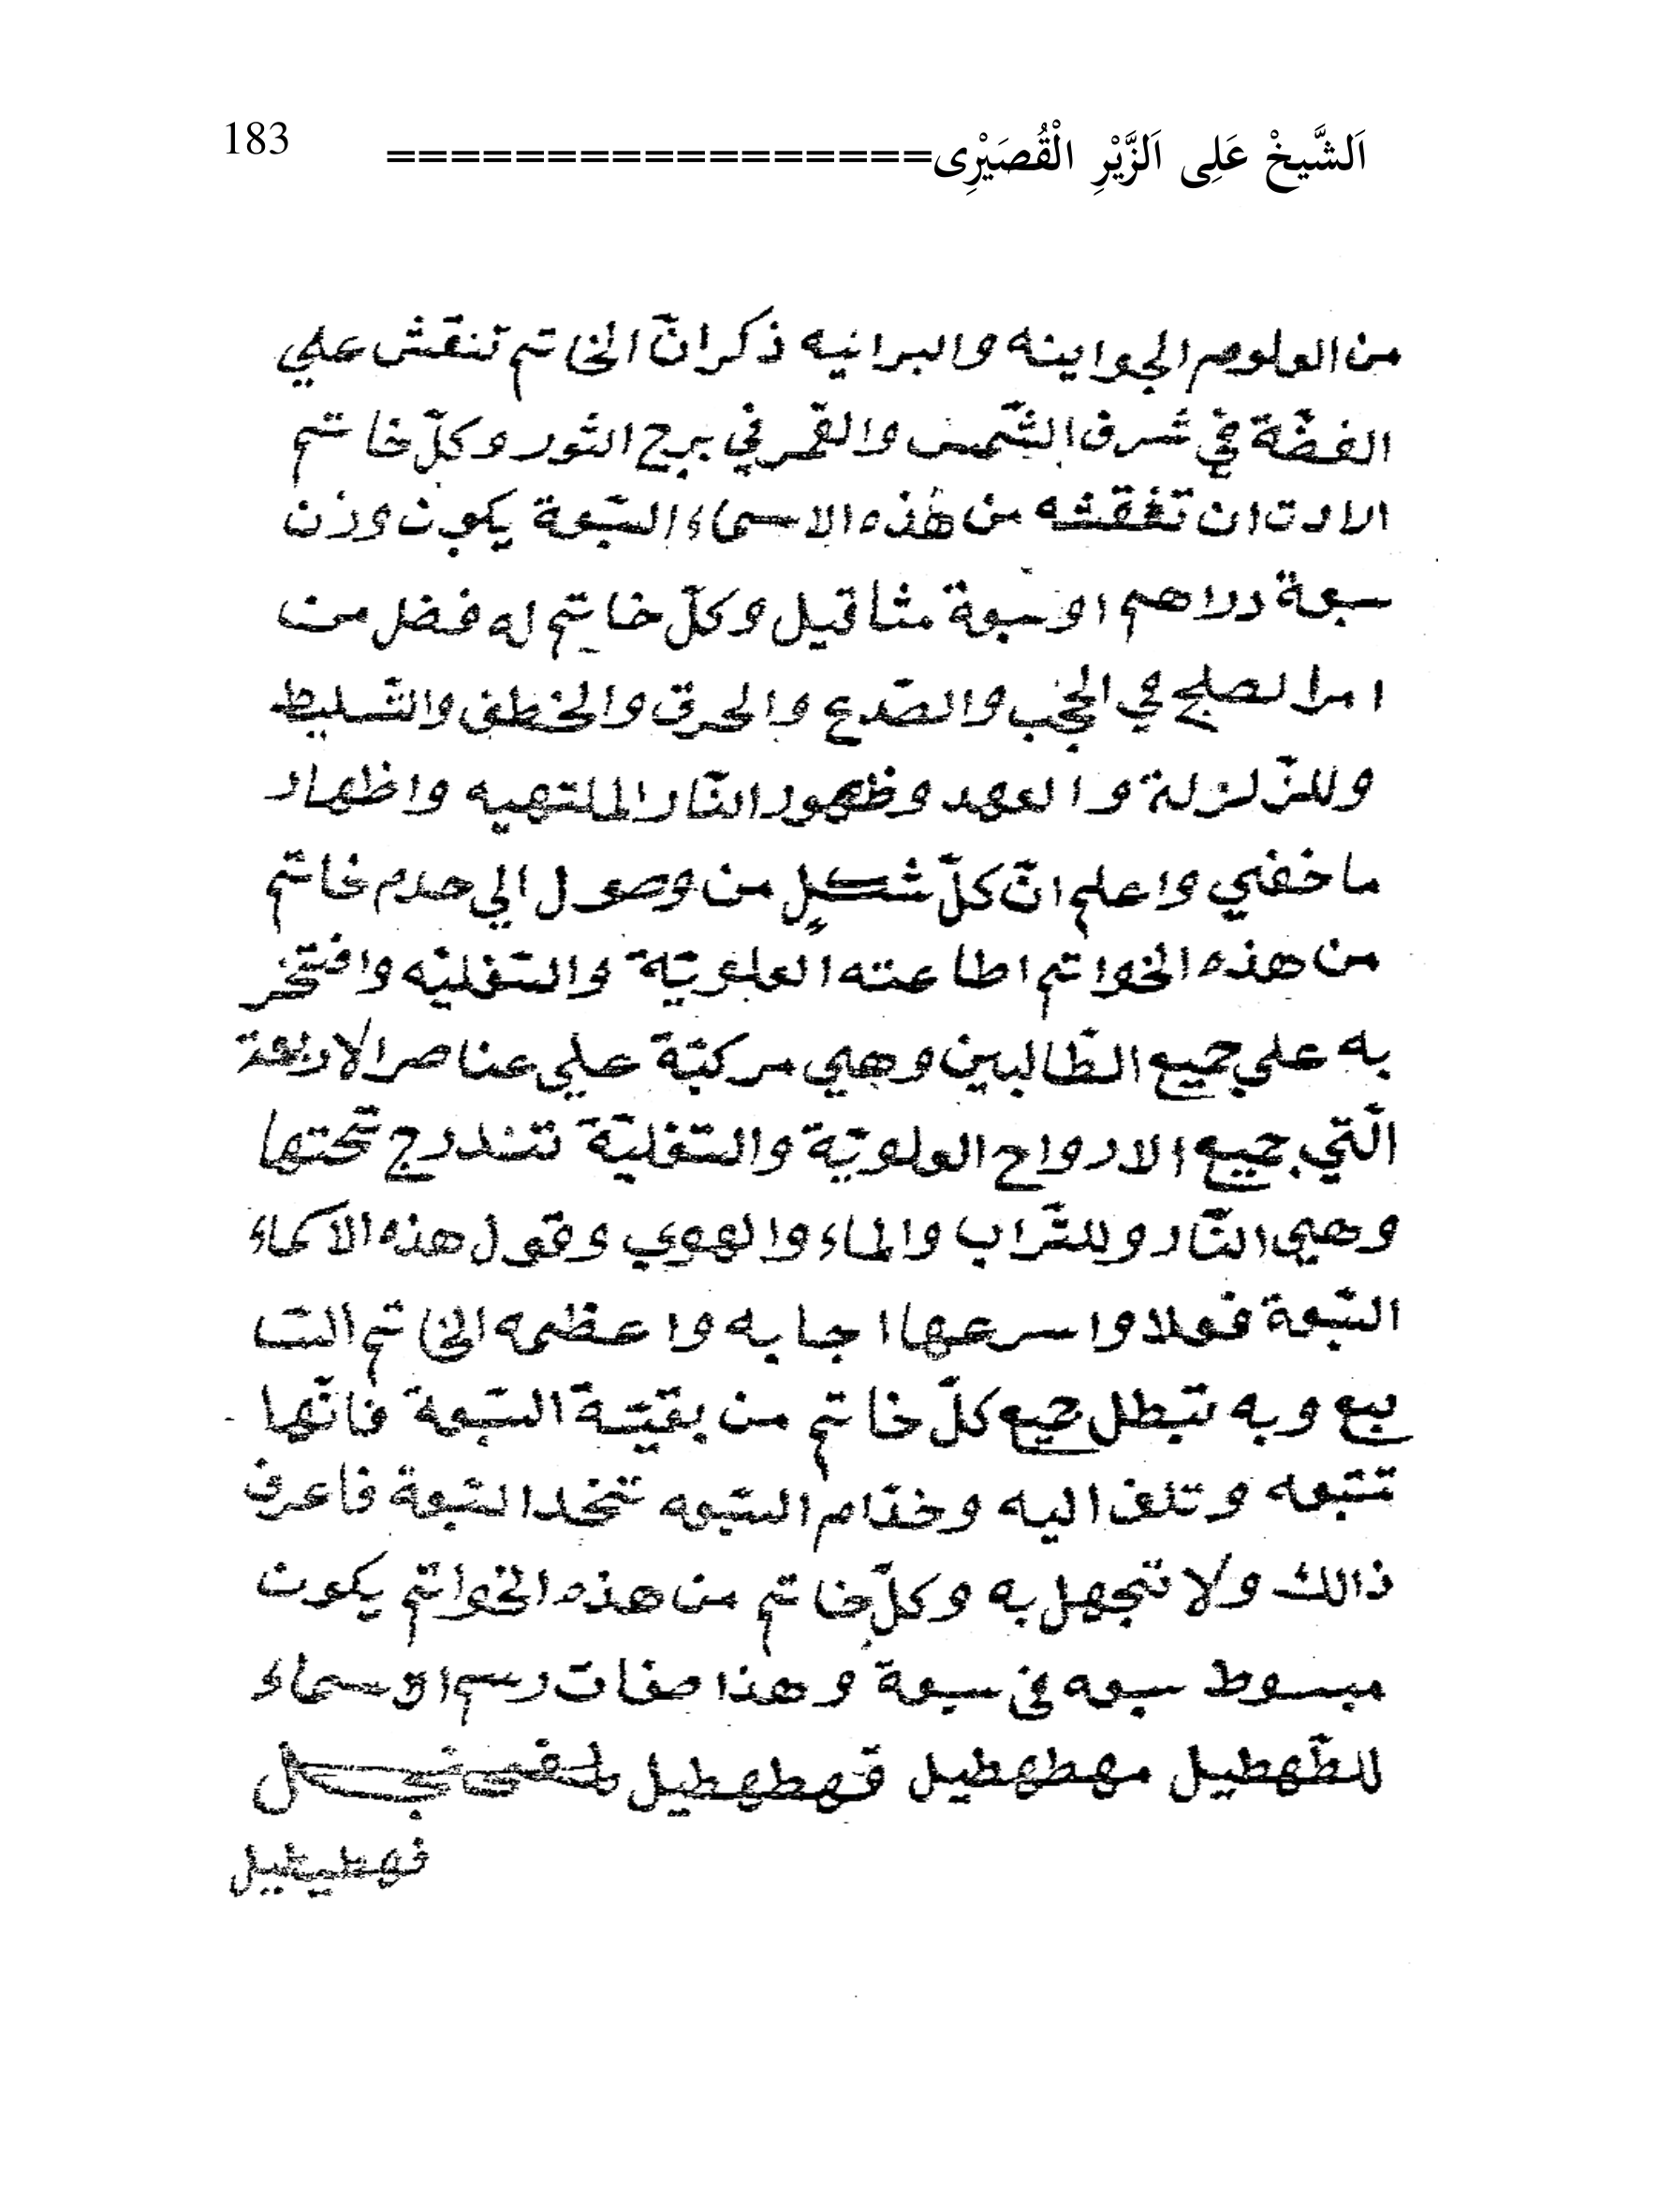 اَلشَّيخْ عَلِى اَلزَّيْرِ الْقُصَيْرِى================= 183
من العلوم الجواينه والبرانيه ذكر انّ الخاتم تنقش علي
الفضّة في شرف الشّمس والقمر في برج الثور وكلّ خاتم
الارت ان تنقشه من هٰذه الاسماء السّبعة يكون وزن
سبعة دراهم او سبعة مثاقيل وكلّ خاتم له فضل من
امر الصلح في الحجب والصّدع والحرق والخطف والتّسليط
وللزّلزلة والعهد وظهور النّار الملتهيه واظهار
ما خفي واعلم انّ كلّ شكل من وصول الي حدم خاتم
من هذه الخواتم اطاعته العلويّة والسّفليّه وافتخر
به علي جميع الطّالبين وهي مركبّة علي عناصر الاربعة
الّتي جميع الارواح العلويّة والسّفليّة تندرج تحتها
وهي النّار وللتّراب والماء والهوي وقول هذه الاسماء
السّبعة فعلا واسرعها اجابه واعظمه الخاتم الت
بيع وبه تبطل جميع كلّ خاتم من بقيّة السّبعة فانّها
تتبعه وتلف اليه وخدّام السّبعه تخد السّبعة فاعرف
ذالك ولا تجهل به وكلّ خاتم من هذه الخواتم يكون
مبسوط سبعه في سبعة وهذا صفات رسم الاسماء
للطّهطيل مهطهطيل قهطهطيل
فهطيطيل